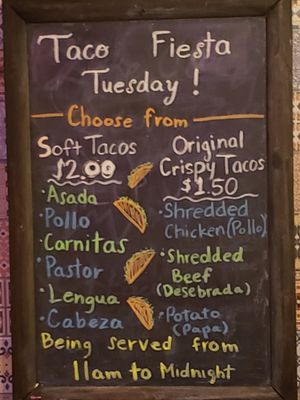 Taco Fiesta
Tuesday!
Choose from
Soft Tacos
$2.00
• Asada
• Pollo
• Carnitas
• Pastor
• Lengua
• Cabeza
Original
Crispy Tacos
$1.50
• Shredded
Chicken (Pollo)
• Shredded
Beef
(Desebrada)
• Potato
(Papa)
Being served from
11am to Midnight